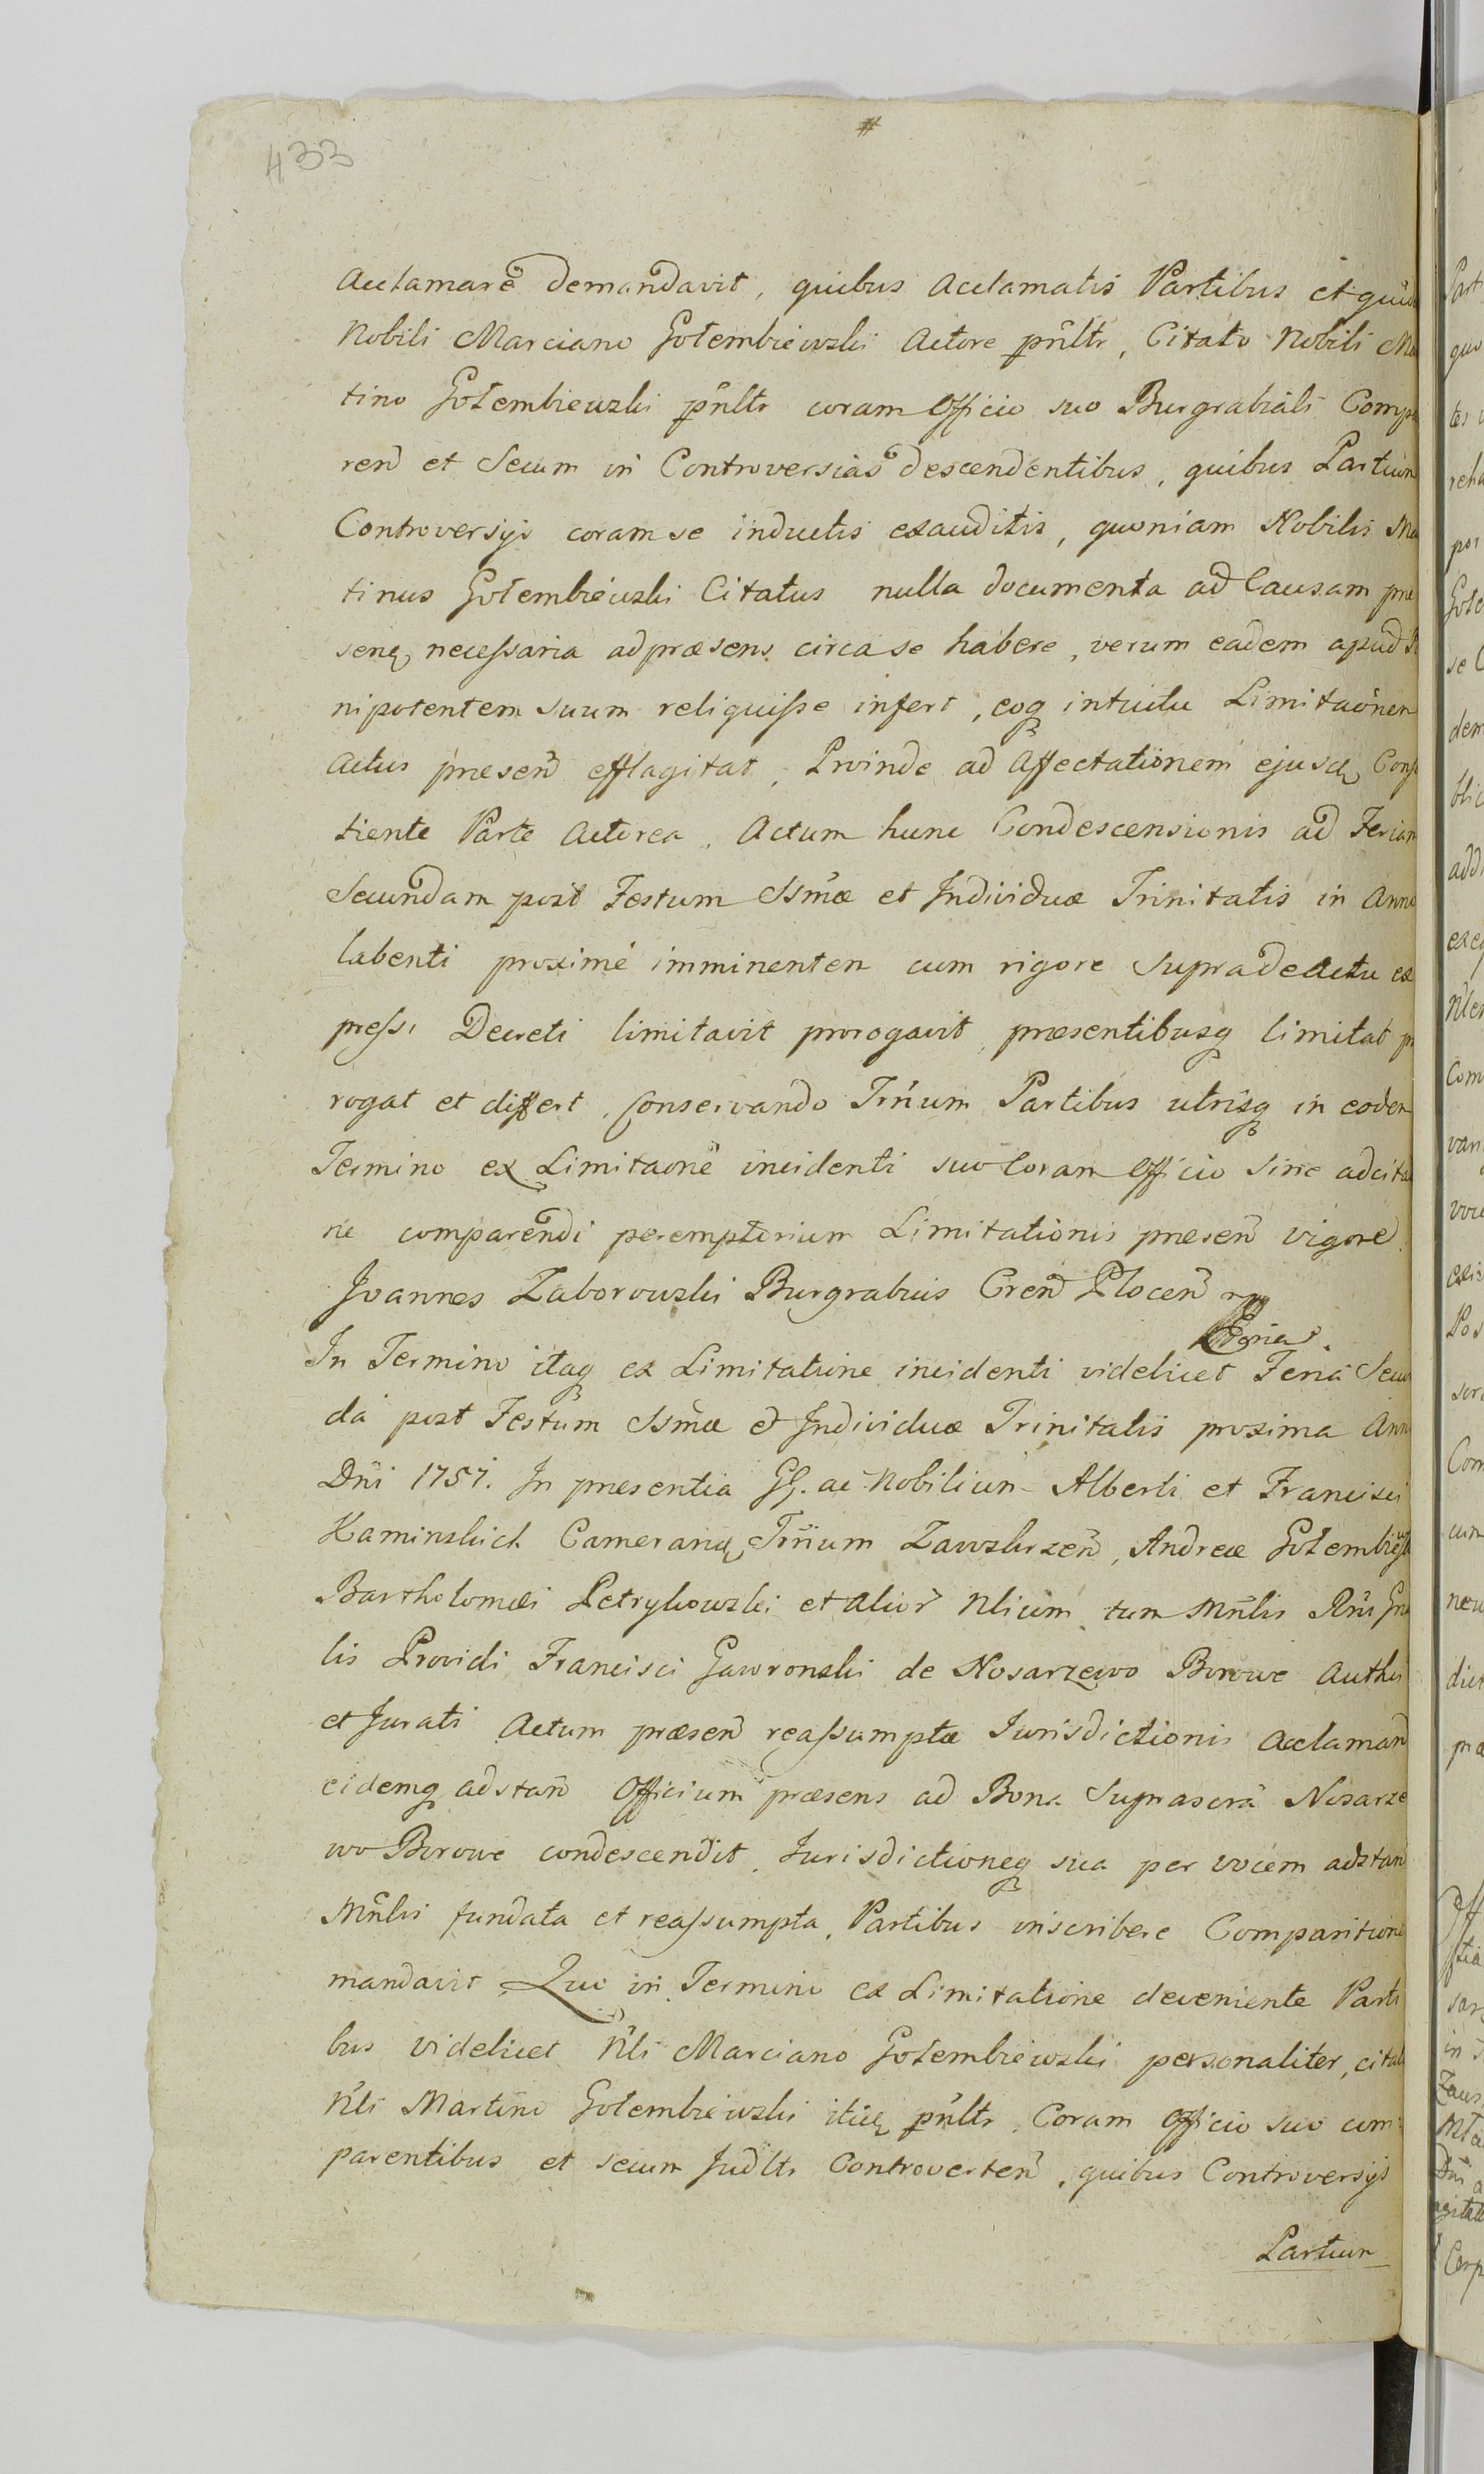 433
#
Acclamare demandavit, quibus Acclamatis Partibus et quid
Nobili Marciano Gołembiewski Actore pñltr, Citato Nobili Ma
tino Gołembiewski pñltr coram Officio suo Burgrabiali Compa
ren̄d et Secum in Controversias descendentibus, quibus Partium
Controversijs coram se inductis exauditis, quoniam Nobilis Ma
tinus Gołembiewski Citatus nulla documenta ad Causam præ
senq necessaria ad præsens circa se habere, verum eadem apud
nipotentem suum reliquisse infert, eoq intuitu Limitaõnem
Actus præsen̄ efflagitat, Proinde ad Affectationem ejusd, Cons
tiente Parte Actorea, Actum hunc Condescensionis ad Feriam
Secundam post Festum Ssmæ et Individuæ Trinitatis in Anno
labenti proxime imminentem cum rigore supra de Actu ex
pressi Decreti limitavit prorogavit, præsentibusq limitat pr
rogat et differt, Conservando Trn̄um Partibus utrisq in eodem
Termino ex Limitaõne incidenti suo Coram Officio sine adcita
ne comparendi peremptorium Limitationis præsen̄ vigore.
Joannes Zaborowski Burgrabius Cren̄ Płocen̄ mp
Feria
In Termino itaq ex Limitatione incidenti videlicet Feria Secun
da post Festum Ssmæ et Individuæ Trinitatis proxima Anno
Dn̄i 1757. In præsentia GG. ac Nobilium Alberti et Francisci
Kaminskich Camerariq, Trn̄um Zawskrzen̄, Andreæ Gołembiews
Bartholomæi Petrykowski et alior̄ Nlium, tum Mn̄lis Rn̄i Gn̄a
lis Providi Francisci Gawronski de Nosarzewo Borowe Authi
et Jurati Actum præsen̄ reassumptæ Jurisdictionis Acclaman̄
eidemq adstan̄ Officium præsens ad Bona Suprascrā Nosarze
wo Borowe condescendit, Jurisdictioneq sua per vocem adstan̄
Mn̄lis fundata et reassumpta, Partibus inscribere Comparitione
mandavit, Quo in Termino ex Limitatione deveniente Parti
bus videlicet Nl̄i Marciano Gołembiewski personaliter, citato
Nl̄i Martino Gołembiewski itid, pñltr, Coram Officio suo com
parentibus et secum Judltr Controverten̄, quibus Controversijs
Partium